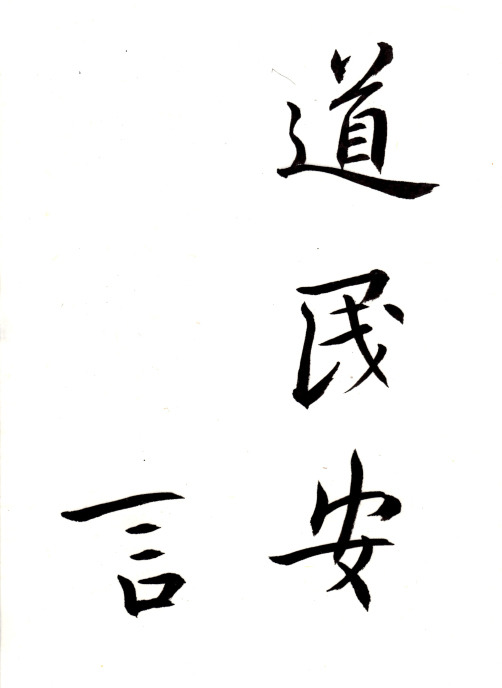 道民安
言